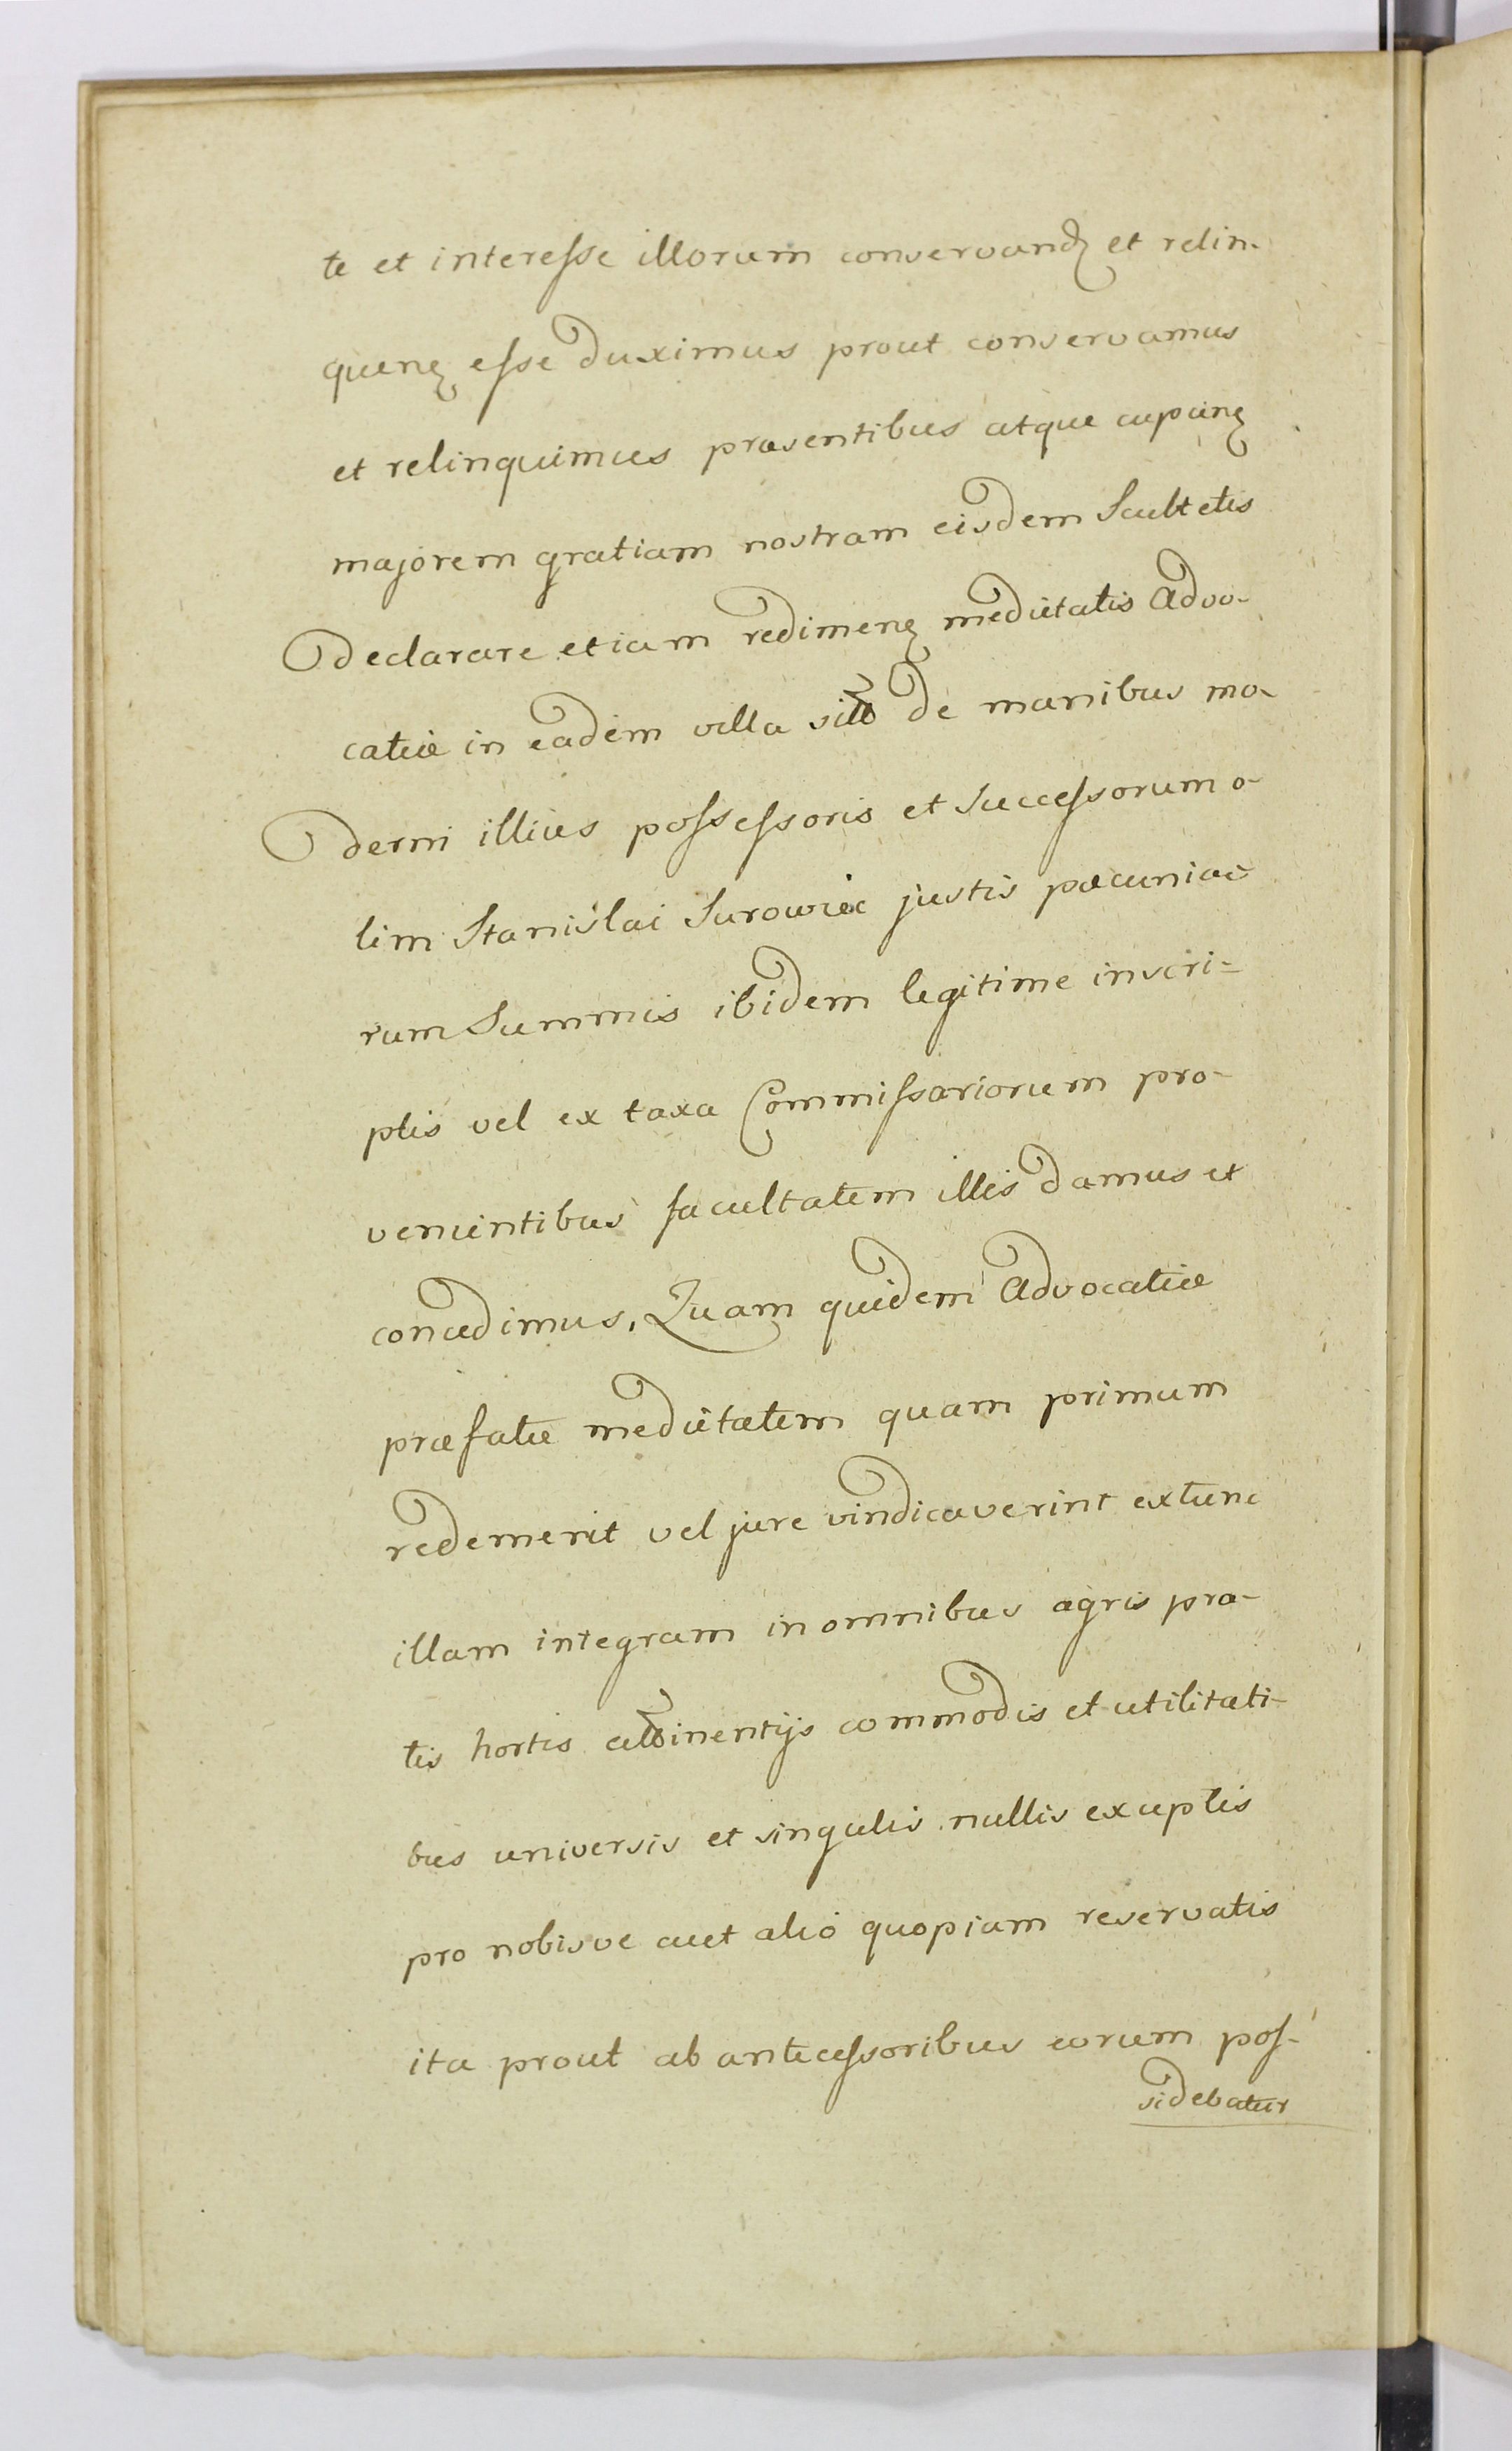 te et interesse illorum conservand et relin-
quen esse duximus prout conservamus
et relinquimus præsentibus atque cupien
majorem gratiam nostram eisdem Scultetis
declarare etiam redimen medietatis Advo-
catiæ in eadem villa sitæ de manibus mo-
derni illius possessoris et successorum o-
lim Stanislai Surowiec justis pæcunia-
rum Summis ibidem legitime inscri-
ptis vel ex taxa Commissariorum pro-
venientibus facultatem illis damus et
concedimus, Quam quidem Advocatiæ
præfatæ medietatem quam primum
redemerit vel jure vindicaverint extunc
illam integram in omnibus agris pra-
tis hortis attinentijs commodis et utilitati-
bus universis et singulis nullis exceptis
pro nobisve aut alio quopiam reservatis
ita prout ab antecessoribus eorum pos-
sidebatur